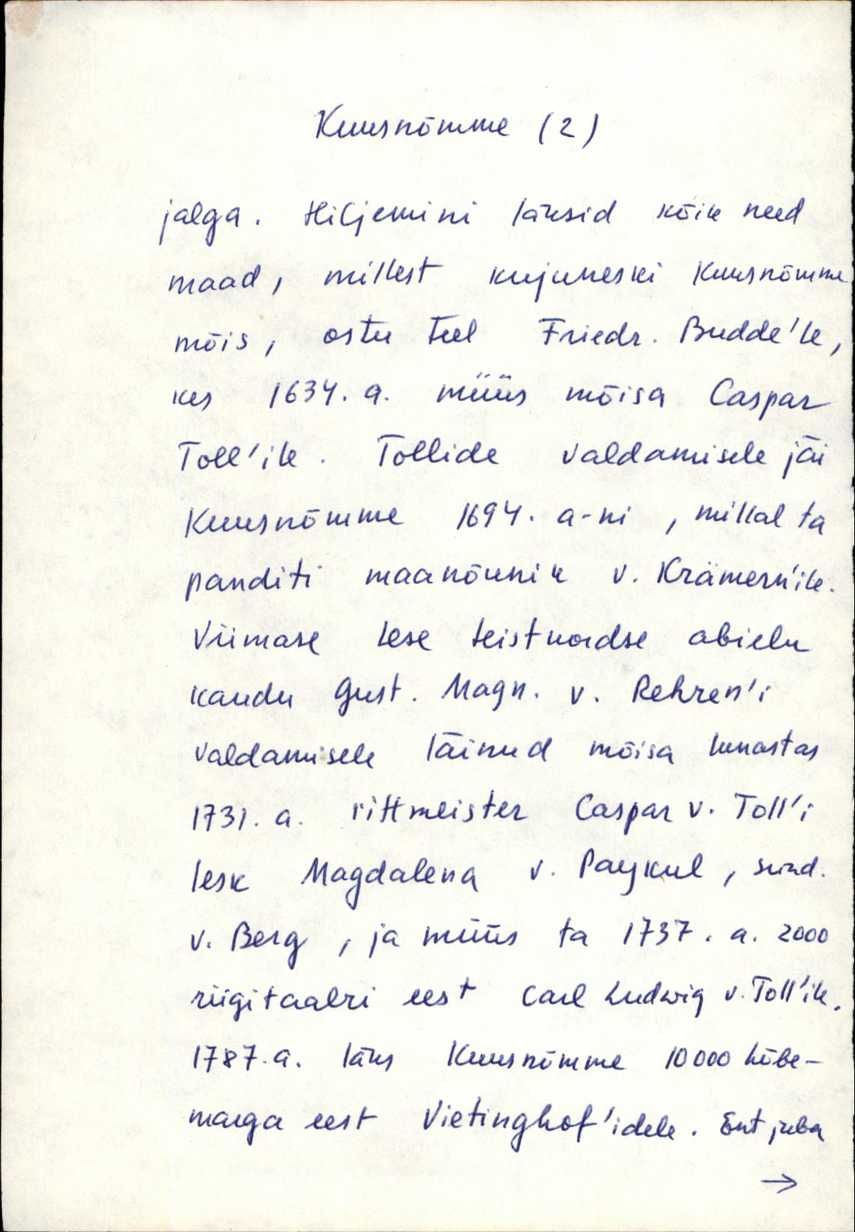 Kuusnõmme (2)
jalga. Hiljemini läksid kõik need
maad, millest kujuneski Kuusnõmme
mõis, ostu teel Friedr. Budde'le,
kes 1634. a. müüs mõisa Caspar
Toll'ile. Tollide valdamisele jäi
Kuusnõmme 1694. a-ni, millal ta
panditi maanõunik v. Krämern'ile.
Viimase lese teistkordse abielu
kaudu Gust. Magn. v. Rehren'i
valdamisele läinud mõisa lunastas
1731. a. rittmeister Caspar v. Toll'i
lesk Magdalena v. Paykul, sünd.
v. Berg, ja müüs ta 1737. a. 2000
riigitaalri eest Carl Ludwig v. Toll'ile.
1787. a. läks Kuusnõmme 10000 hõbe-
marga eest Vietinghof'idele. Ent juba
→